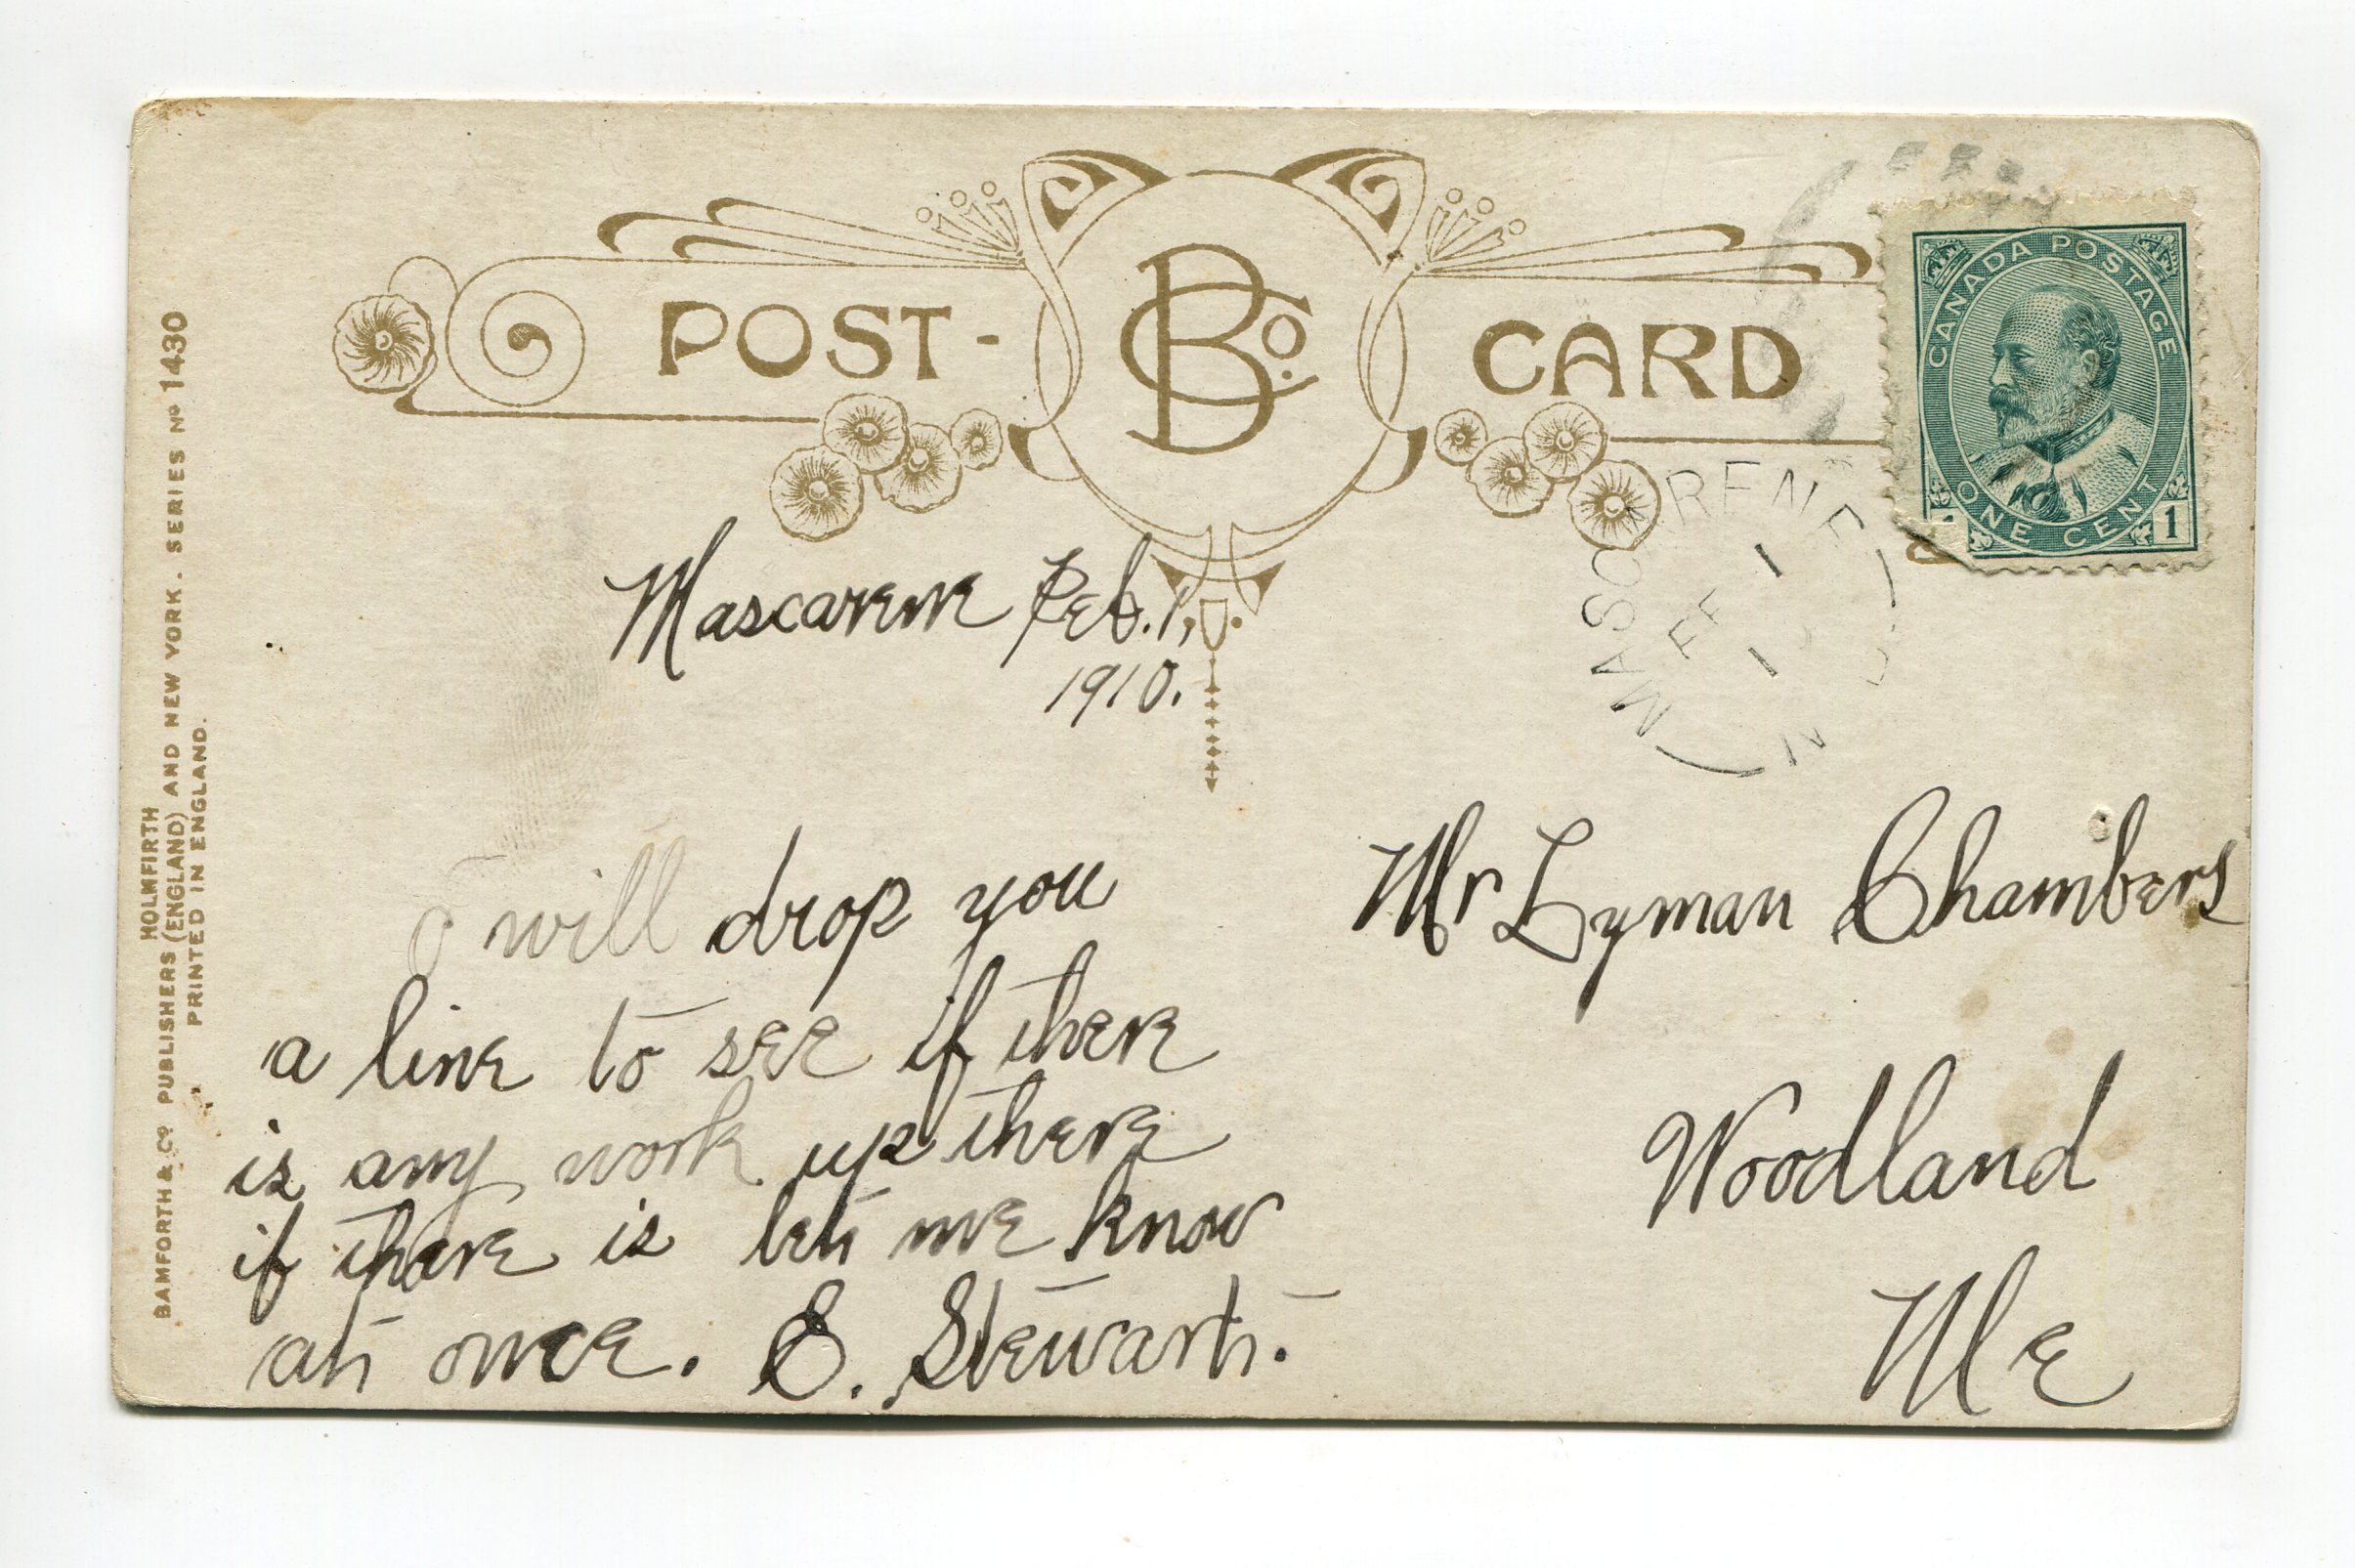 POST-CARD
BCo.
CANADA POSTAGE
ONE CENT
1
MASCARENE
FE 1
1
N
Mascarene Feb. 1,
1910.
I will drop you
a line to see if there
is any work up there
if there is let me know
at once. E. Stewart.
Mr Lyman Chambers
Woodland
Me
HOLMFIRTH
BAMFORTH & Co PUBLISHERS (ENGLAND) AND NEW YORK. SERIES No 1430
PRINTED IN ENGLAND.